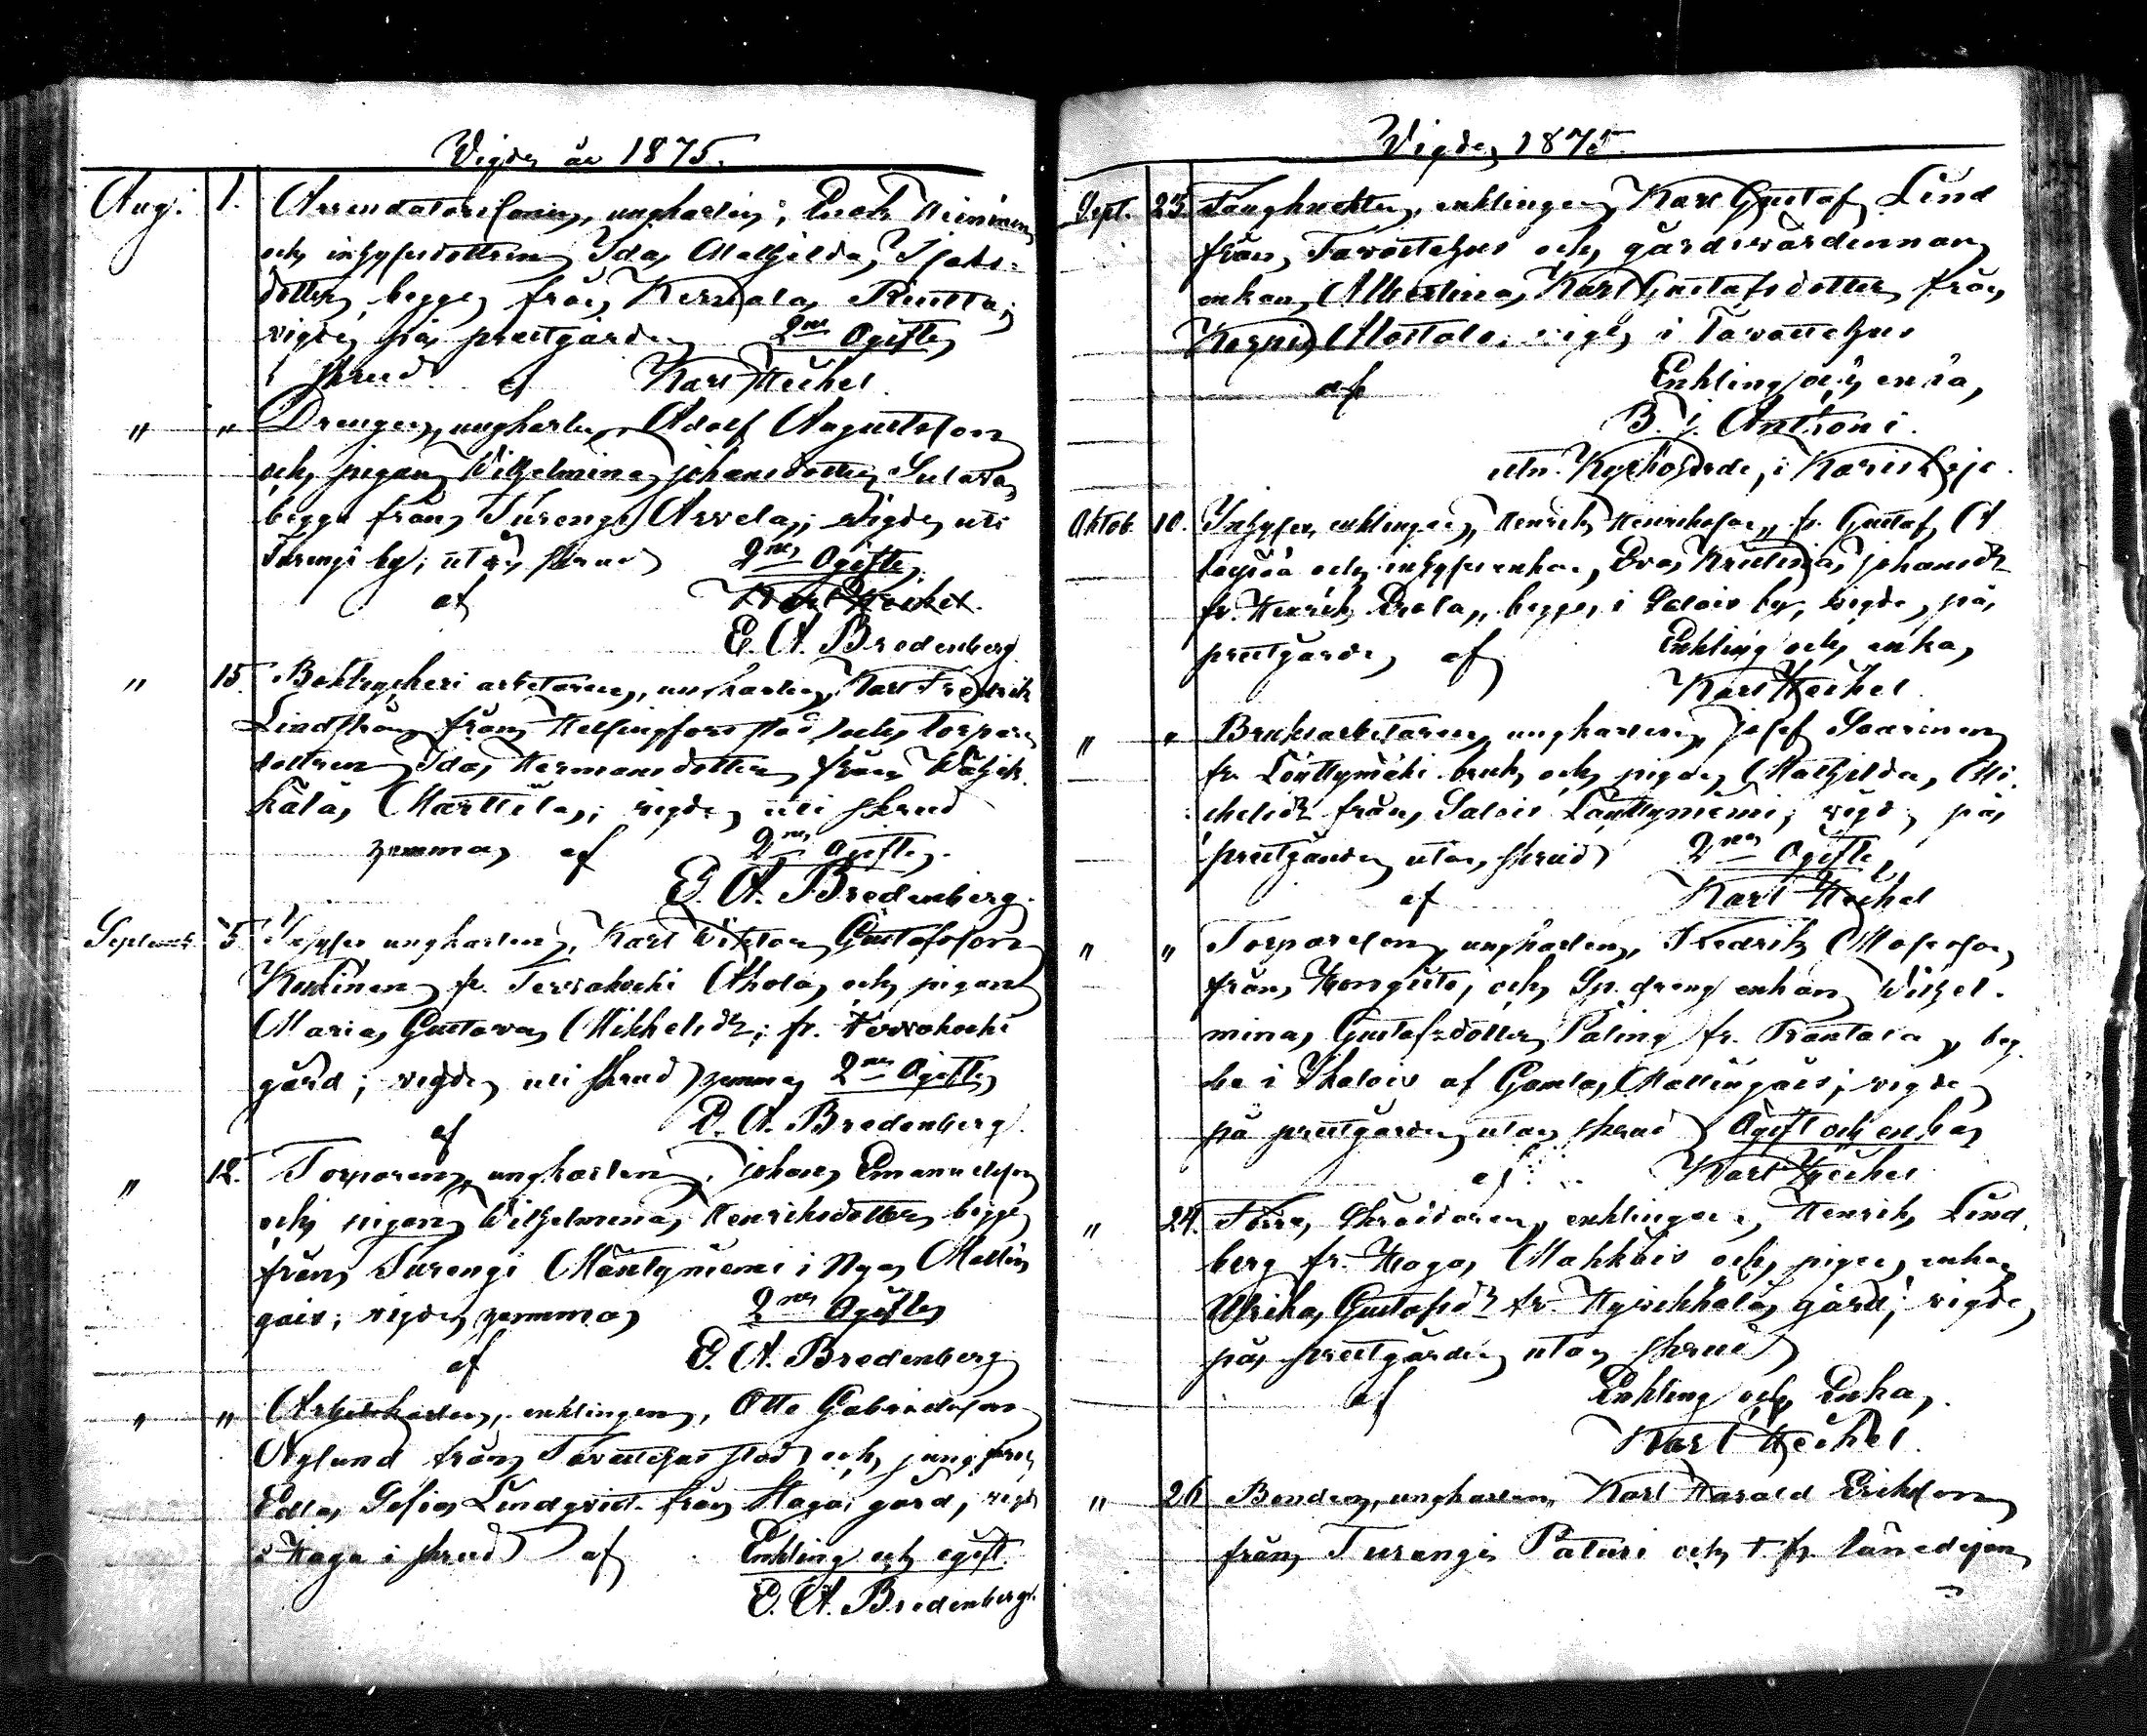 Vigde år 1875.
Aug. 1. Arrendatorssonen, ungkarlen, Enok Nieminen
och inhysesdottren Ida Mathilda Isaks-
dotter begge från Kernala Pruttu;
vigde på prestgården 2ne Ogifte
i skrud af Karl Heikel
" " Drengen, ungkarlen Adolf Augustsson
och pigan Wilhelmina Johansdotter Sulava
begge från Turengi Arvela; vigde uti
Turengi by; utan skrud 2ne Ogifte
af Karl Heikel.
E. A. Bredenberg
" 15. Boktryckeri arbetaren, ungkarlen, Karl Fredrik
Lindström från Helsingfors stad och torpare
dottren Ida Hermansdotter från
Marttila; vigde uti skrud
hemma af 2ne Ogifte.
E. A. Bredenberg.
Septemb. 5 Inhyses ungkarlen, Karl Wiktor Gustafsson
fr. Tervakoski Ahola och pigan
Maria Gustava Mikkelsdr; fr. Tervakoski
gård; vigde uti skrud hemma 2ne Ogifte
af E. A. Bredenberg.
" 12. Torparen, ungkarlen, Johan Emanuelsson
och pigan Wilhelmina Henriksdotter begge
från Turengi Mäntyniemi i Nya Mallin
gais; vigde hemma 2ne Ogifte
af E. A. Bredenberg
" " Arbetskarlen, enklingen, Otto Gabrielsson
Nylund från Tavastehus stad och jungfrun
Edla Sofia Lindqvist från Haga gård, vigde
i Haga i skrud af Enkling och ogift.
E. A. Bredenberg.
Vigde 1875.
Sept. 23. Fångknekten, enklingen Karl Gustaf Lind
från Tavastehus och gårdsvärdinnan
enkan Albertina Karl Gustafsdotter från
Mattala; vigde i Tavastehus
af Enkling och enka,
B. J. Anthoni.
utn. Kyrkoherde i Karislojo.
Oktob. 10. Inhyses, enklingen, Henrik Henriksson, fr. Gustaf A
och inhyses enkan, Eva Kristina Johansdr
fr. Henrik Erola, begge i Salois by, vigde på
prestgården af Enkling och enka,
Karl Heikel
" " Bruksarbetaren, ungkarlen, Josef Saarinen
fr. Löyttymäki bruk och pigan Mathilda Mi
chelsdr från Salois Löyttyniemi; vigde på
prestgården utan skrud 2ne Ogifte,
af Karl Heikel
" " Torparesonen, ungkarlen, Fredrik Mosesson
från Hongisto, och Sp. dreng enkan Wilhel-
mina Gustafsdotter Paling fr. Rantala, beg
be i Skalois af Gamla Mallingais; vigde
på prestgården utan skrud Ogift och enka
af Karl Heikel
" 24. Förre Skräddaren, enklingen, Henrik Lind
berg fr. Haga Mahkois och pigan, enkan
Ulrika Gustafsdr fr. gård; vigde
på prestgården utan skrud
af Enkling och Enka,
Karl Heikel.
" 26 Bonden, ungkarlen, Karl Harald Eriksson
från Turengi Paturi och t. f. länsdejan